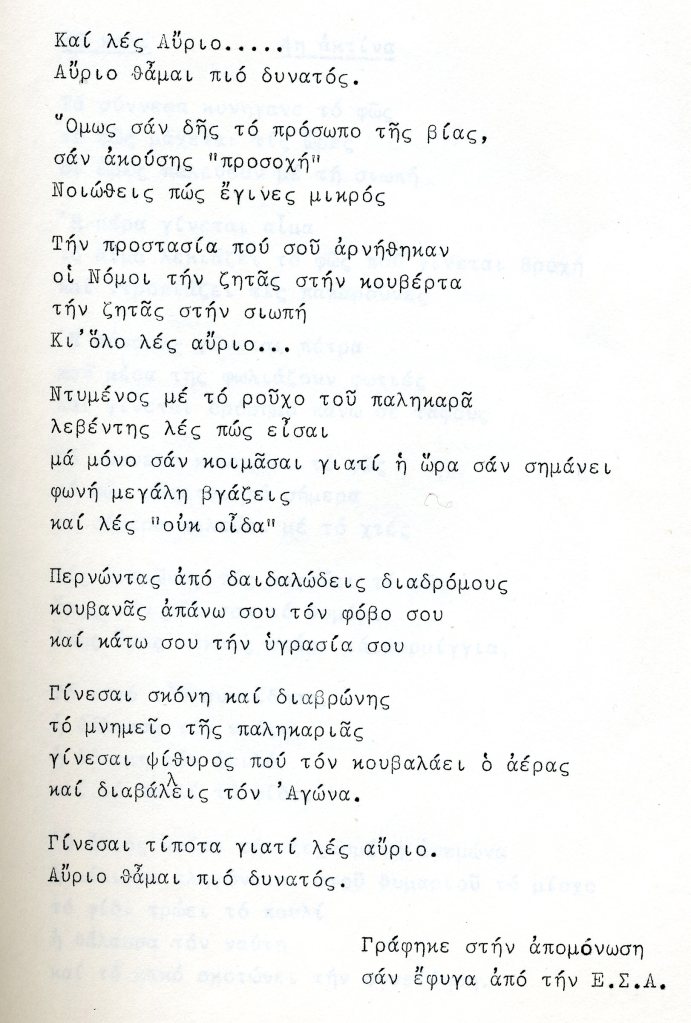 Καί λές Αὔριο.....
Αὔριο θἆμαι πιό δυνατός.
Ὅμως σάν δῆς τό πρόσωπο τῆς βίας,
σάν ἀκούσης "προσοχή"
Νοιώθεις πώς ἔγινες μικρός
Τήν προστασία πού σοῦ ἀρνήθηκαν
οἱ Νόμοι τήν ζητᾶς στήν κουβέρτα
τήν ζητᾶς στήν σιωπή
Κι'ὅλο λές αὔριο...
Ντυμένος μέ τό ροῦχο τοῦ παληκαρᾶ
λεβέντης λές πώς εἶσαι
μά μόνο σάν κοιμᾶσαι γιατί ἡ ὥρα σάν σημάνει
φωνή μεγάλη βγάζεις
καί λές "οὐκ οἶδα"
Περνώντας ἀπό δαιδαλώδεις διαδρόμους
κουβανᾶς ἀπάνω σου τόν φόβο σου
καί κάτω σου τήν ὑγρασία σου
Γίνεσαι σκόνη καί διαβρώνης
τό μνημεῖο τῆς παληκαριᾶς
γίνεσαι ψίθυρος πού τόν κουβαλάει ὁ ἀέρας
καί διαβάλλεις τόν Ἀγώνα.
Γίνεσαι τίποτα γιατί λές αὔριο.
Αὔριο θἆμαι πιό δυνατός.
Γράφηκε στήν ἀπομόνωση
σάν ἔφυγα ἀπό τήν Ε.Σ.Α.